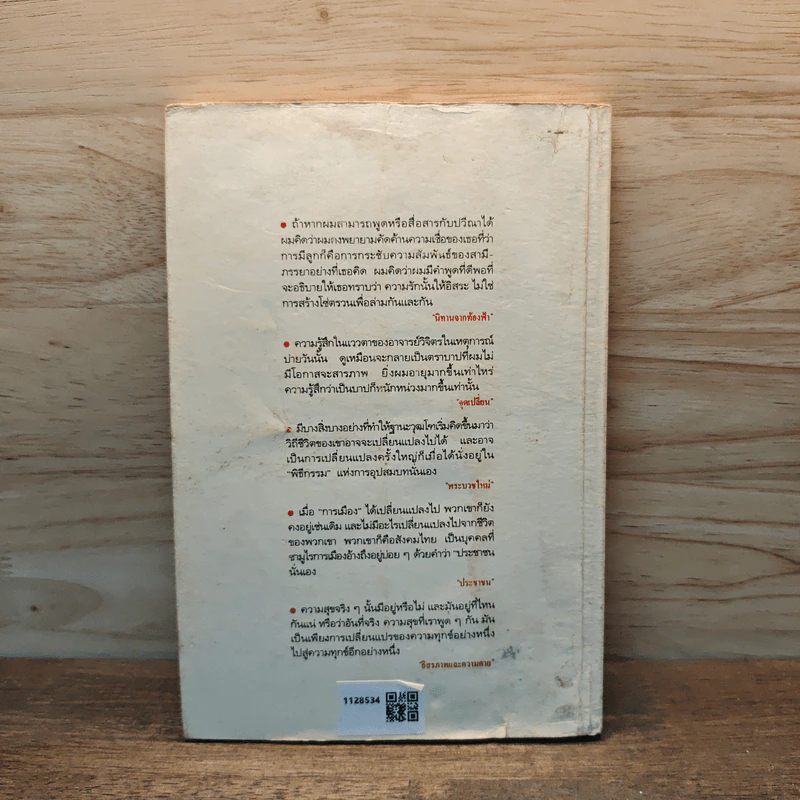 ● ถ้าหากผมสามารถพูดหรือสื่อสารกับปวีณาได้
ผมคิดว่าผมคงพยายามคัดค้านความเชื่อของเธอที่ว่า
การมีลูกก็คือการกระชับความสัมพันธ์ของสามี-
ภรรยาอย่างที่เธอคิด ผมคิดว่าผมมีคำพูดที่ดีพอที่
จะอธิบายให้เธอทราบว่า ความรักนั้นให้อิสระ ไม่ใช่
การสร้างโซ่ตรวนเพื่อล่ามกันและกัน
"นิทานจากท้องฟ้า"
● ความรู้สึกในแววตาของอาจารย์วิจิตรในเหตุการณ์
บ่ายวันนั้น ดูเหมือนจะกลายเป็นตราบาปที่ผมไม่
มีโอกาสจะสารภาพ ยิ่งผมอายุมากขึ้นเท่าไหร่
ความรู้สึกว่าเป็นบาปก็หนักหน่วงมากขึ้นเท่านั้น
"จุดเปลี่ยน"
● มีบางสิ่งบางอย่างที่ทำให้ฐานะวุฒโฑเริ่มคิดขึ้นมาว่า
วิถีชีวิตของเขาอาจจะเปลี่ยนแปลงไปได้ และอาจ
เป็นการเปลี่ยนแปลงครั้งใหญ่ก็เมื่อได้นั่งอยู่ใน
"พิธีกรรม" แห่งการอุปสมบทนั่นเอง
"พระบวชใหม่"
● เมื่อ "การเมือง" ได้เปลี่ยนแปลงไป พวกเขาก็ยัง
คงอยู่เช่นเดิม และไม่มีอะไรเปลี่ยนแปลงไปจากชีวิต
ของพวกเขา พวกเขาก็คือสังคมไทย เป็นบุคคลที่
ซามูไรการเมืองอ้างถึงอยู่บ่อย ๆ ด้วยคำว่า "ประชาชน
นั่นเอง
"ประชาชน"
● ความสุขจริง ๆ นั้นมีอยู่หรือไม่ และมันอยู่ที่ไหน
กันแน่ หรือว่าอันที่จริง ความสุขที่เราพูด ๆ กัน มัน
เป็นเพียงการเปลี่ยนแปรของความทุกข์อย่างหนึ่ง
ไปสู่ความทุกข์อีกอย่างหนึ่ง
"อิสรภาพและความตาย"
1128534